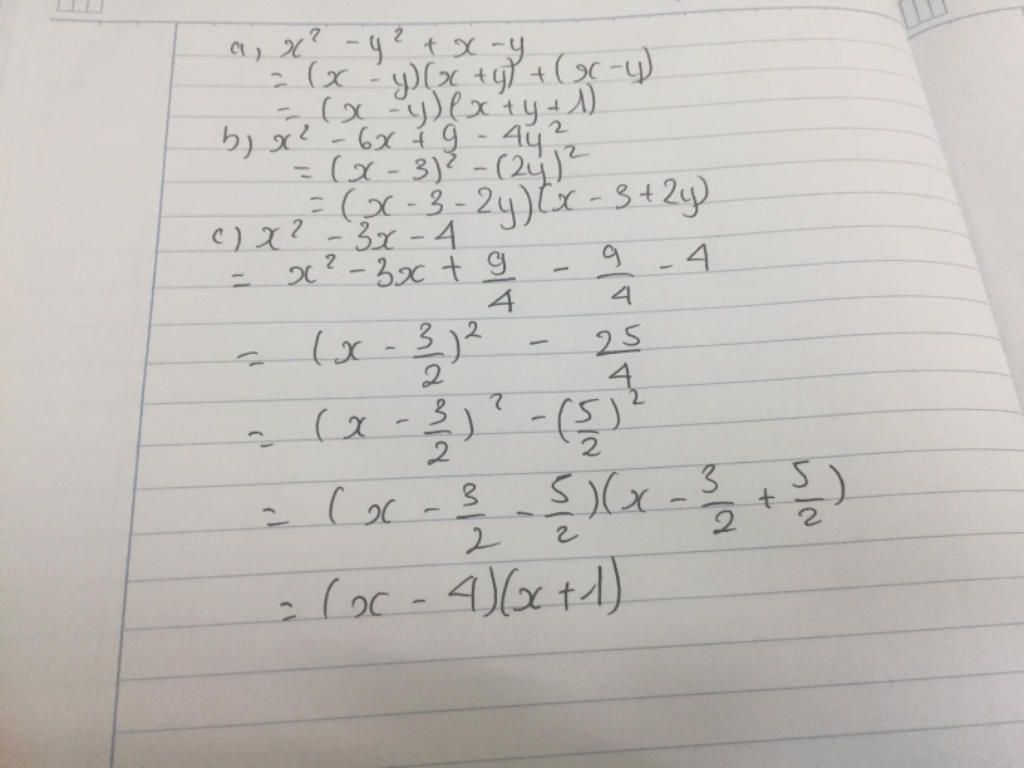 a, x² - y² + x - y
= (x - y)(x + y) + (x - y)
= (x - y)(x + y + 1)
b) x² - 6x + 9 - 4y²
= (x - 3)² - (2y)²
= (x - 3 - 2y)(x - 3 + 2y)
c) x² - 3x - 4
= x² - 3x + 9/4 - 9/4 - 4
= (x - 3/2)² - 25/4
= (x - 3/2)² - (5/2)²
= (x - 3/2 - 5/2)(x - 3/2 + 5/2)
= (x - 4)(x + 1)